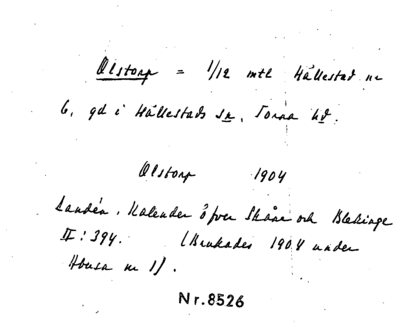 Olstorp = 1/12 mtl Hällestad nr
6, gd i Hällestads sn, Torna hd.
Olstorp 1904
Landén, Kalender öfver Skåne och Blekinge
II: 394. (Brukades 1904 under
nr 1).
Nr.8526